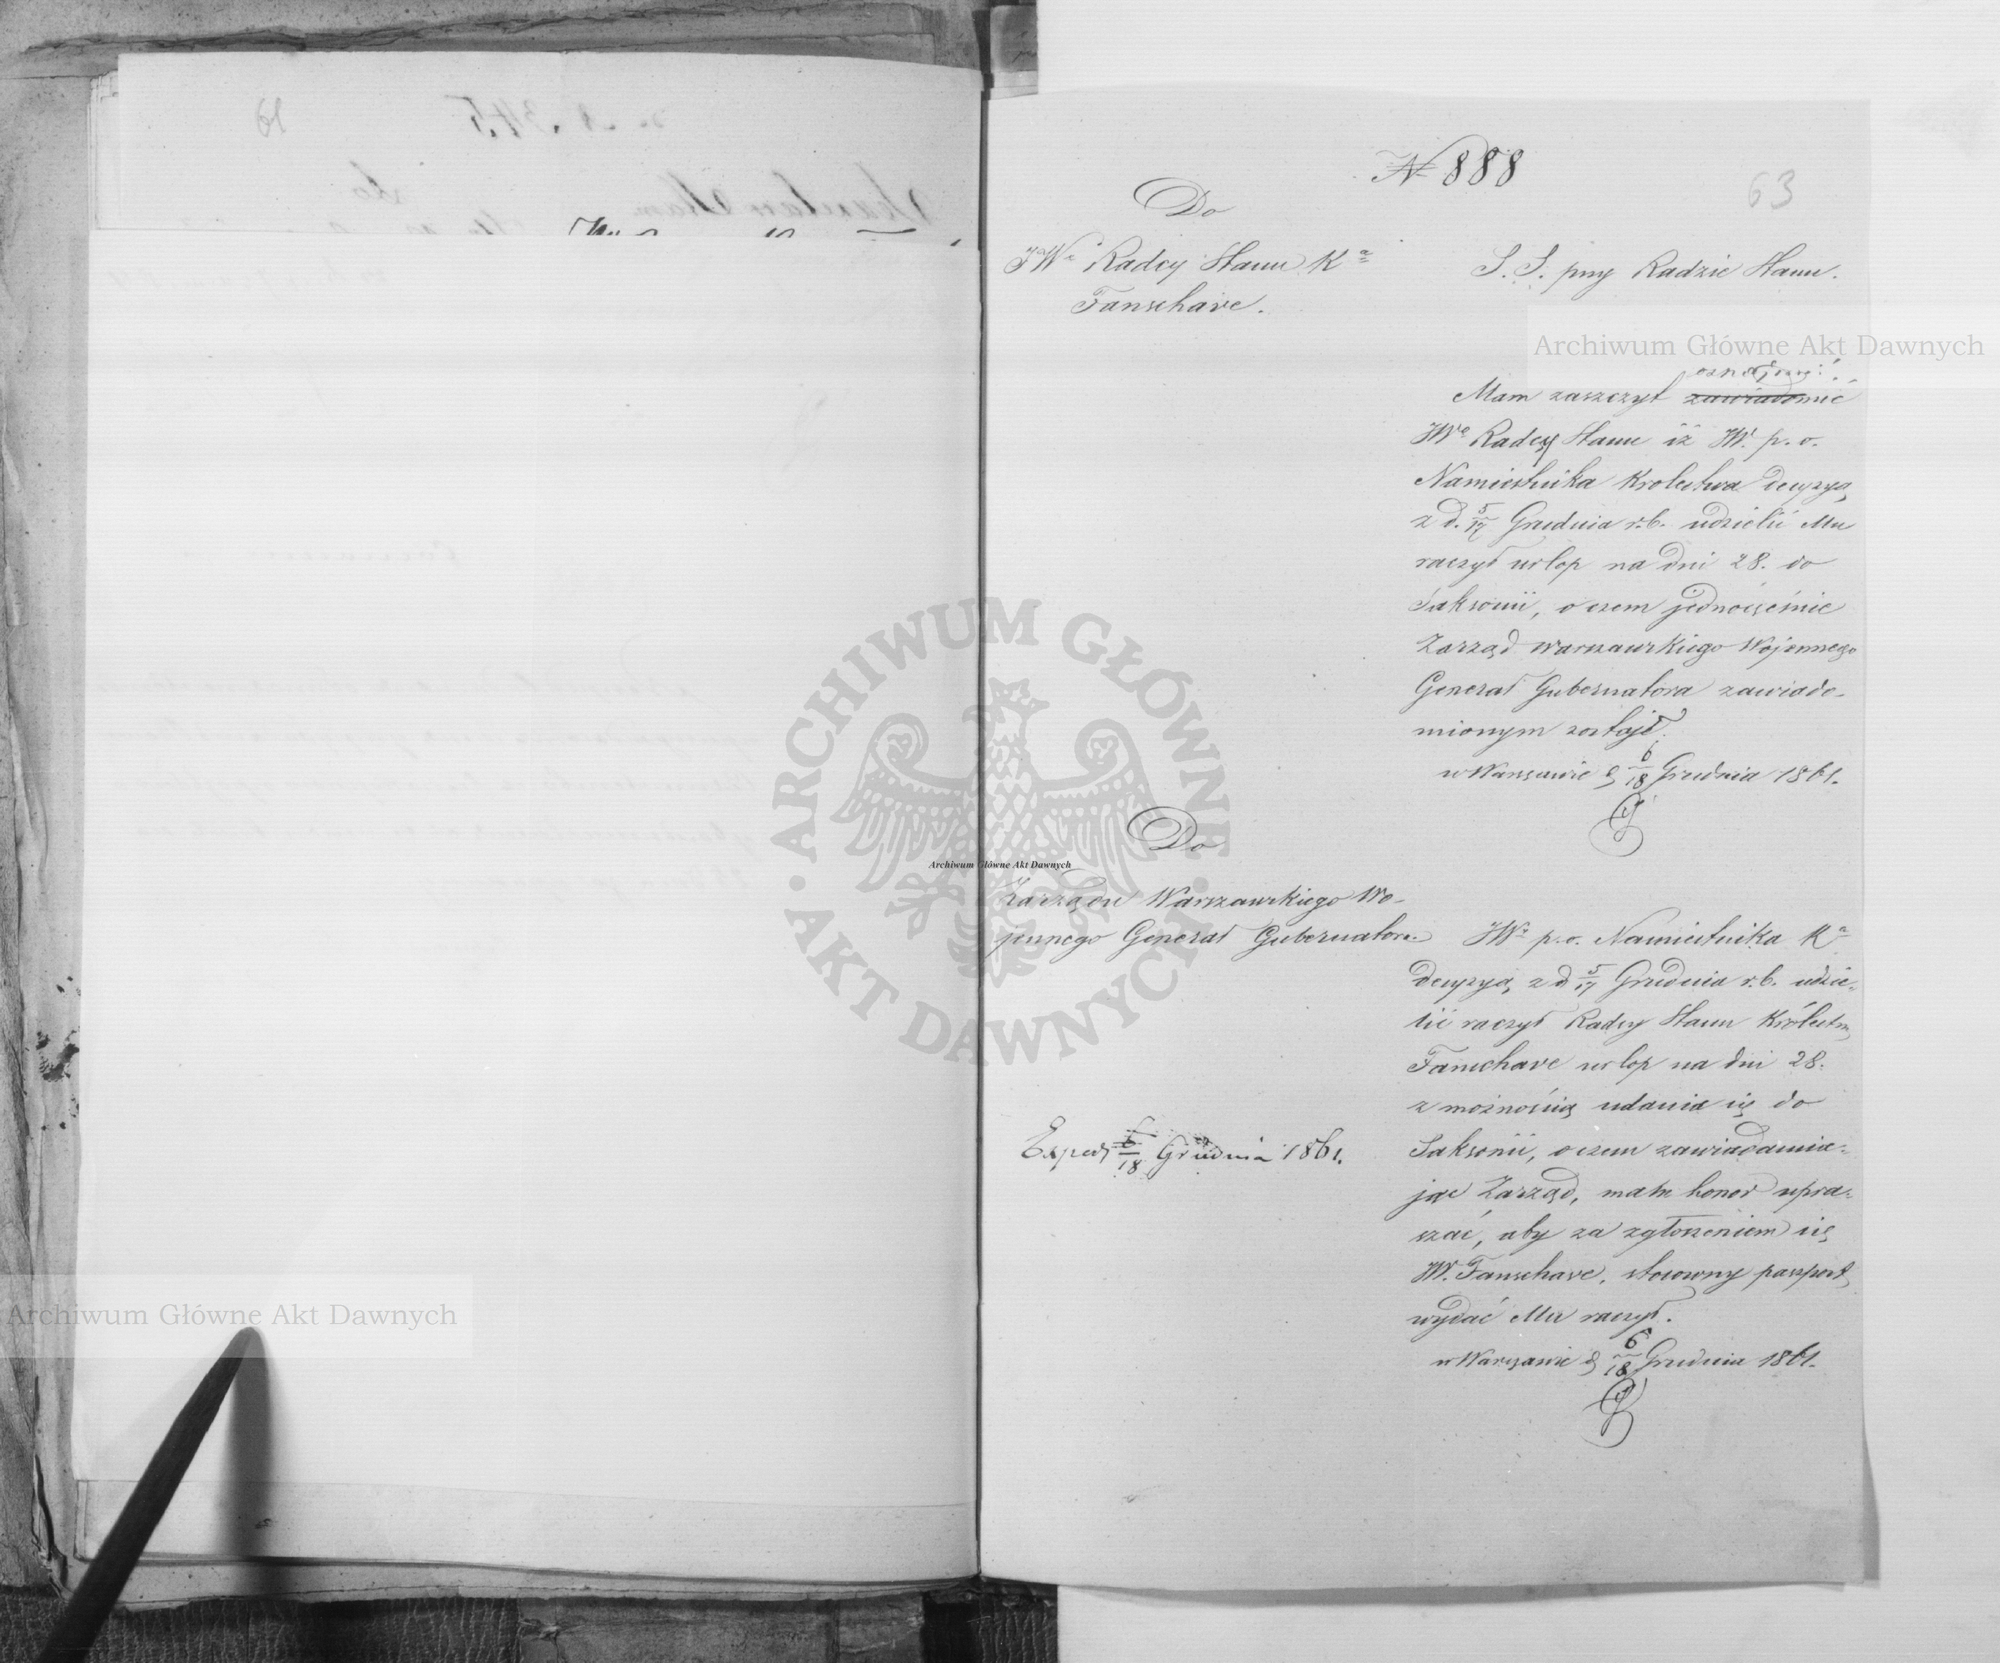 № 888
63
Do
JWo Radcy Stanu Ka
Fanschave.
S. S. przy Radzie Stanu.
oznajmić
Mam zaszczyt zawiadomić
JWo Radcy Stanu iż JW. p. o.
Namiestnika Krolestwa decyzyą
z d. 5/17 Grudnia r. b. udzielić Mu
raczył urlop na dni 28. do
Saksonii, o czem jednocześnie
Zarząd Warszawskiego Wojennego
Generał Gubernatora zawiado-
mionym zostaje.
w Warszawie d 6/18 Grudnia 1861.
Do
Zarządu Warszawskiego Wo-
jennego Generał Gubernatora
JWy p. o. Namiestnika Ka
decyzyą z d 5/17 Grudnia r. b. udzie-
lić raczył Radcy Stanu Królestwa
Fanschave urlop na dni 28.
z możnością udania się do
Saksonii, o czem zawiadamia-
jąc Zarząd, mam honor upra-
szać, aby za zgłoszeniem się
JW. Fanschave, stosowny passport
wydać Mu raczył.
w Warszawie d 6/18 Grudnia 1861.
Exped 6/18 Grudnia 1861.
Archiwum Główne Akt Dawnych
Archiwum Główne Akt Dawnych
Archiwum Główne Akt Dawnych
ARCHIWUM GŁÓWNE AKT DAWNYCH